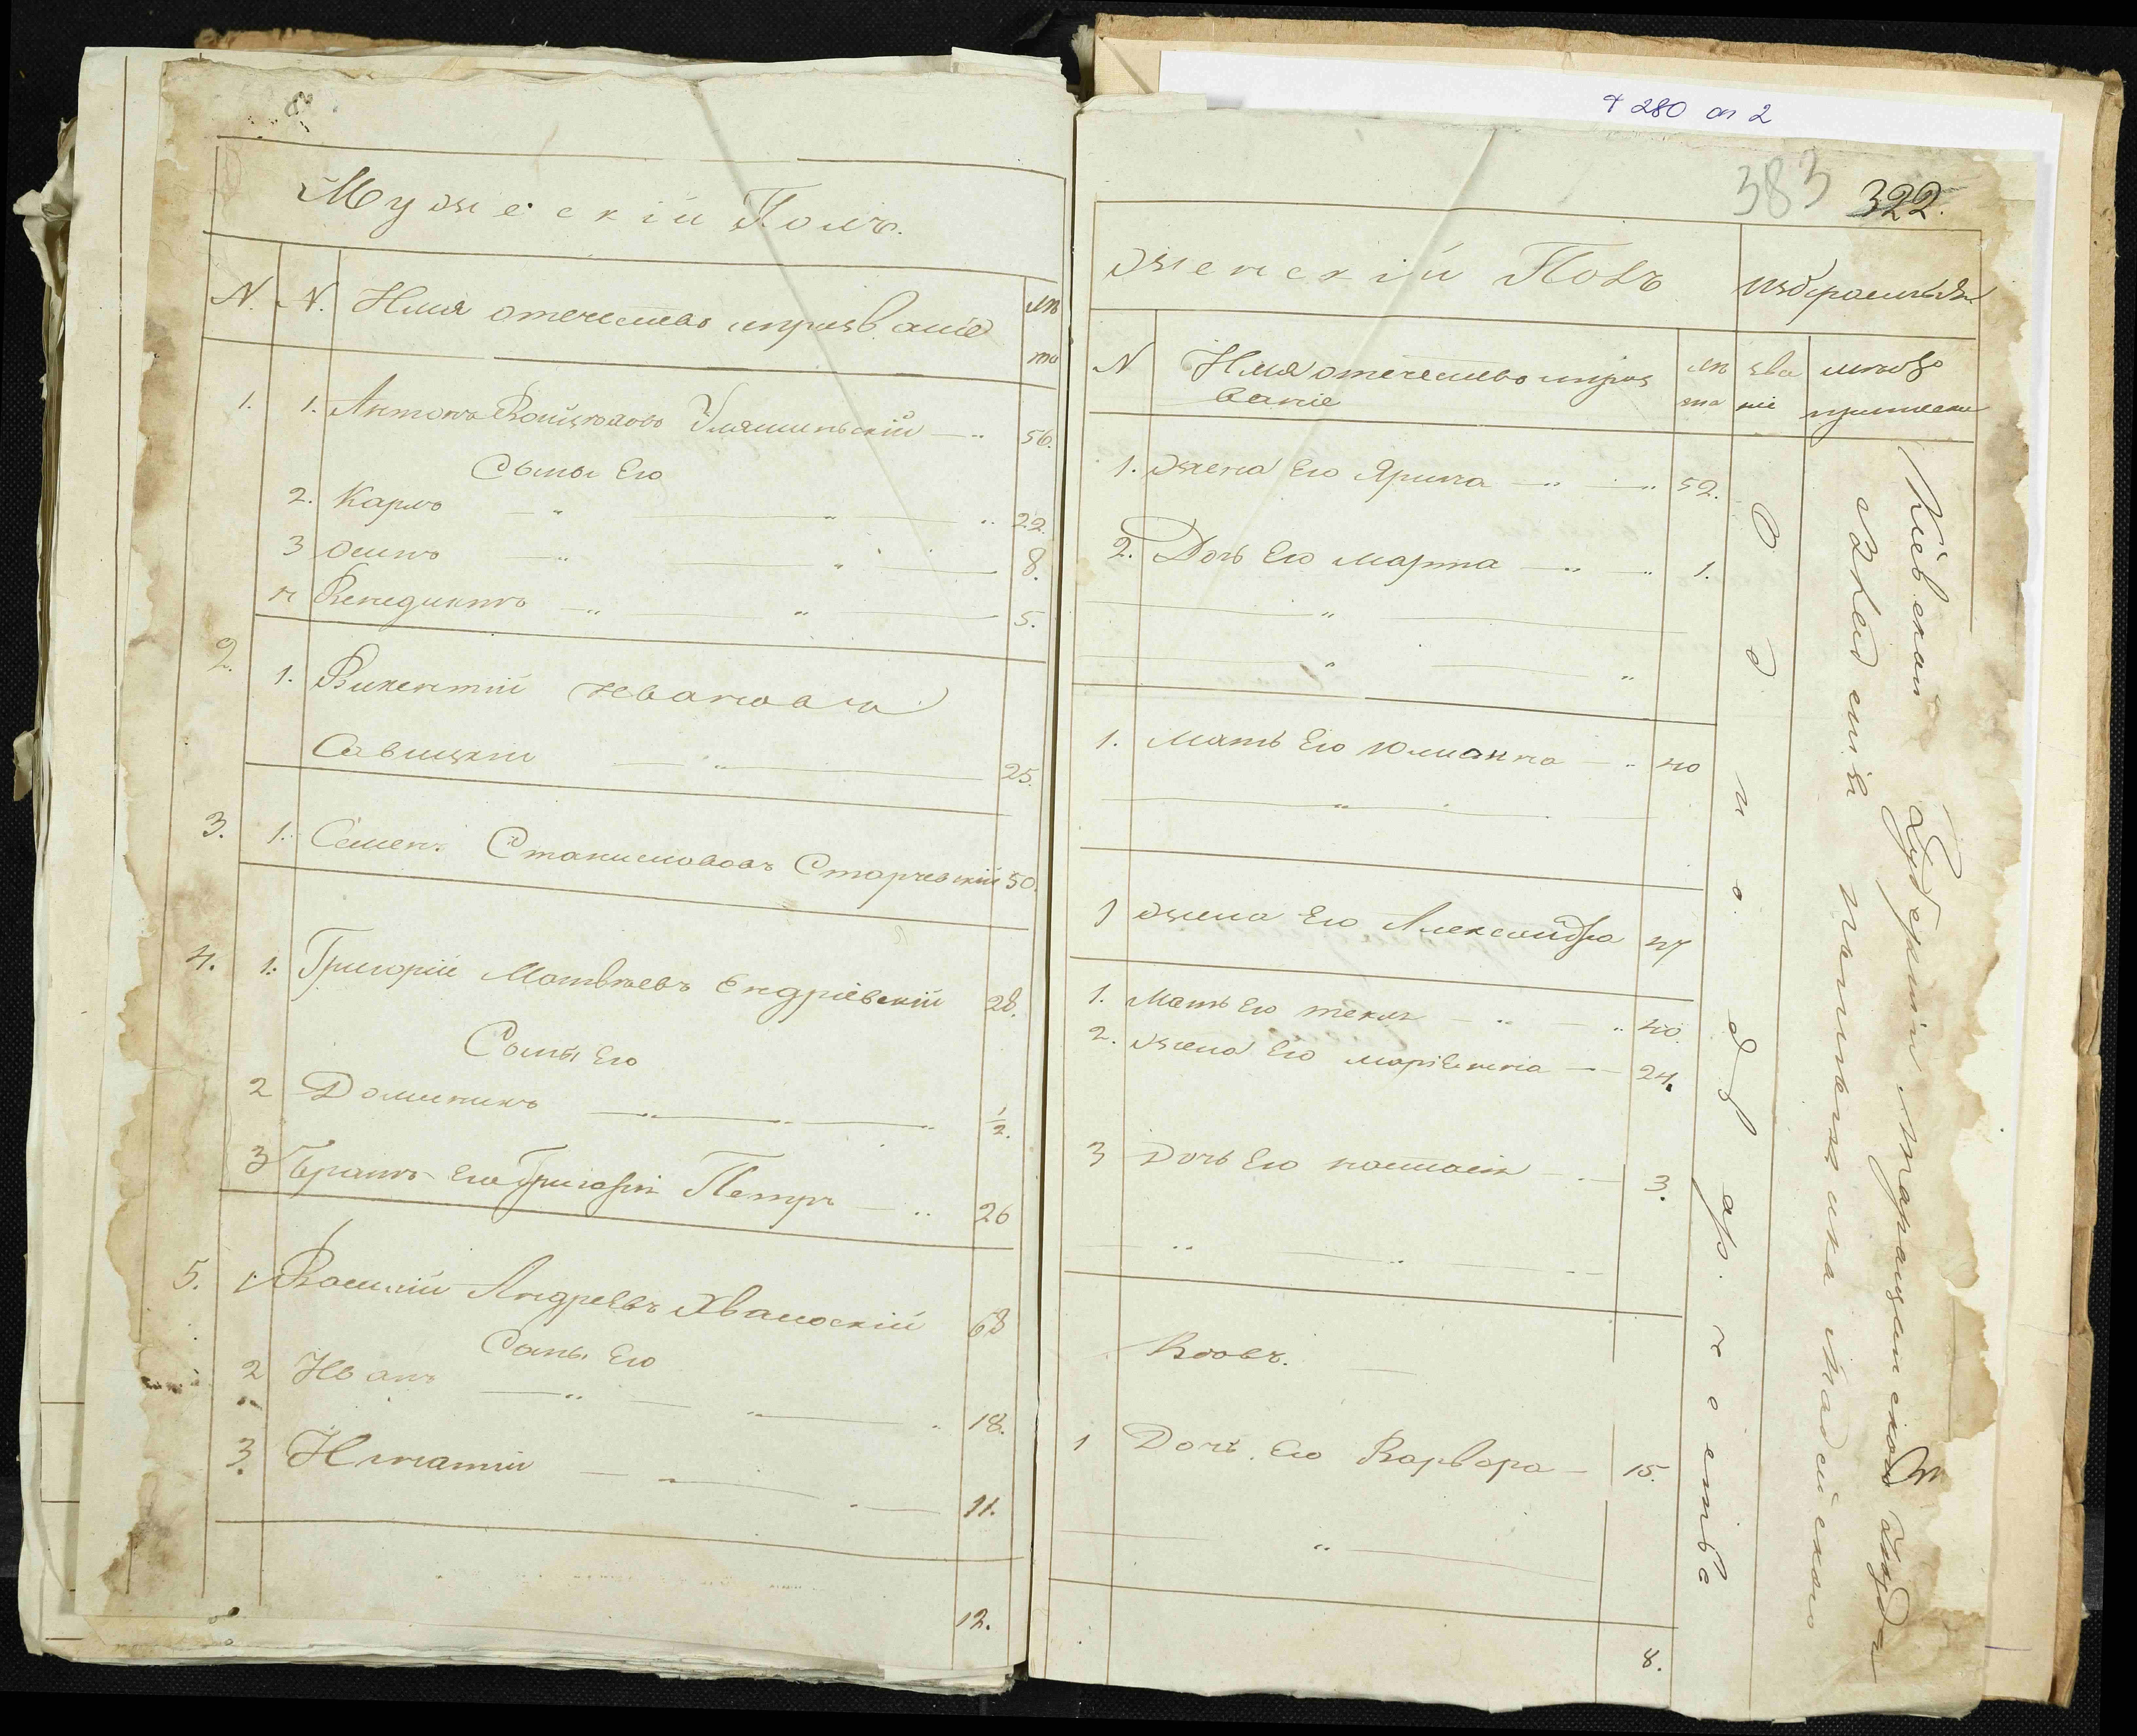 ф 280 оп 2
383 322.
Мужескій Полъ.
N. N. Имя отечество ипрозваніе лѣ
та
1. 1. Антонъ Войцѣховъ 56.
Сыны Его
2. Карлъ 22
3 Осипъ 8.
4 Венедиктъ 5.
2. 1. Викентій Ивановъ
Савицкій 25.
3. 1. Семенъ Станиславовъ Старчевскій 50.
4. 1. Григорій Матвѣевъ Ендріевскій 28.
Сыны Его
2 Доминикъ 1/2.
3 Братъ Его Григорія Петръ 26
5. 1 Василій Андреевъ 68
Сыны Его
2 Иванъ 18.
3. Игнатій 11.
12.
Женскій Полъ избрали
N Имя отечество ипроз
ваніе
лѣ
та
зва
ніе
мѣсто
приписки
1. Жена Его Ярина 52.
2. Дочь Его марта 1.
1. Мать Его Юлианна 40
1 Жена Его Александра 47
1. Мать Его текля 40.
2. Жена Его маріанна 24.
3 Дочь Его настасія 3.
Вдовъ.
1 Дочь Его Варвора 15.
8.
Однодворчество
Кіевской Губерніи Таращанскаго Уезда